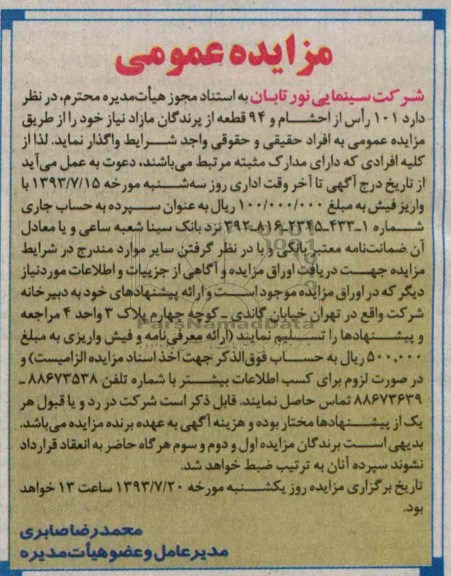 مزایده عمومی
شرکت سینمایی نور تابان به استناد مجوز هیأت‌مدیره محترم، در نظر
دارد ۱۰۱ رأس از احشام و ۹۴ قطعه از پرندگان مازاد نیاز خود را از طریق
مزایده عمومی به افراد حقیقی و حقوقی واجد شرایط واگذار نماید. لذا از
کلیه افرادی که دارای مدارک مثبته مرتبط می‌باشند، دعوت به عمل می‌آید
از تاریخ درج آگهی تا آخر وقت اداری روز سه‌شنبه مورخه ۱۳۹۳/۷/۱۵ با
واریز فیش به مبلغ ۱۰۰/۰۰۰/۰۰۰ ریال به عنوان سپرده به حساب جاری
شماره ۱-۴۳۳-۲۳۴۵-۸۱۶-۳۹۲ نزد بانک سینا شعبه ساعی و یا معادل
آن ضمانت‌نامه معتبر بانکی و با در نظر گرفتن سایر موارد مندرج در شرایط
مزایده جهت دریافت اوراق مزایده و آگاهی از جزییات و اطلاعات موردنیاز
دیگر که در اوراق مزایده موجود است و ارائه پیشنهادهای خود به دبیرخانه
شرکت واقع در تهران خیابان گاندی - کوچه چهارم پلاک ۳ واحد ۴ مراجعه
و پیشنهادها را تسلیم نمایند (ارائه معرفی‌نامه و فیش واریزی به مبلغ
۵۰۰,۰۰۰ ریال به حساب فوق‌الذکر جهت اخذ اسناد مزایده الزامیست) و
در صورت لزوم برای کسب اطلاعات بیشتر با شماره تلفن ۸۸۶۷۳۵۳۸ -
۸۸۶۷۳۶۳۹ تماس حاصل نمایند. قابل ذکر است شرکت در رد و یا قبول هر
یک از پیشنهادها مختار بوده و هزینه آگهی به عهده برنده مزایده می‌باشد.
بدیهی است برندگان مزایده اول و دوم و سوم هرگاه حاضر به انعقاد قرارداد
نشوند سپرده آنان به ترتیب ضبط خواهد شد.
تاریخ برگزاری مزایده روز یکشنبه مورخه ۱۳۹۳/۷/۲۰ ساعت ۱۳ خواهد
بود.
محمدرضا صابری
مدیرعامل و عضو هیأت مدیره
ParsNamadData